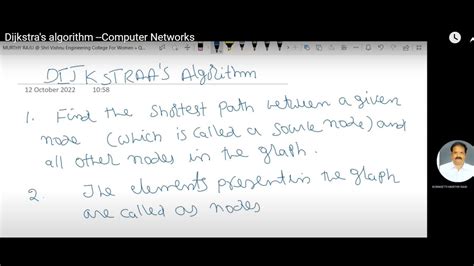 Dijkstra's algorithm --Computer Networks
MURTHY RAJU @ Shri Vishnu Engineering College For Women
DIJKSTRAA'S Algorithm
12 October 2022 10:58
1. Find the shortest path between a given
node (which is called a source node) and
all other nodes in the graph.
2. The elements present in the graph
are called as nodes